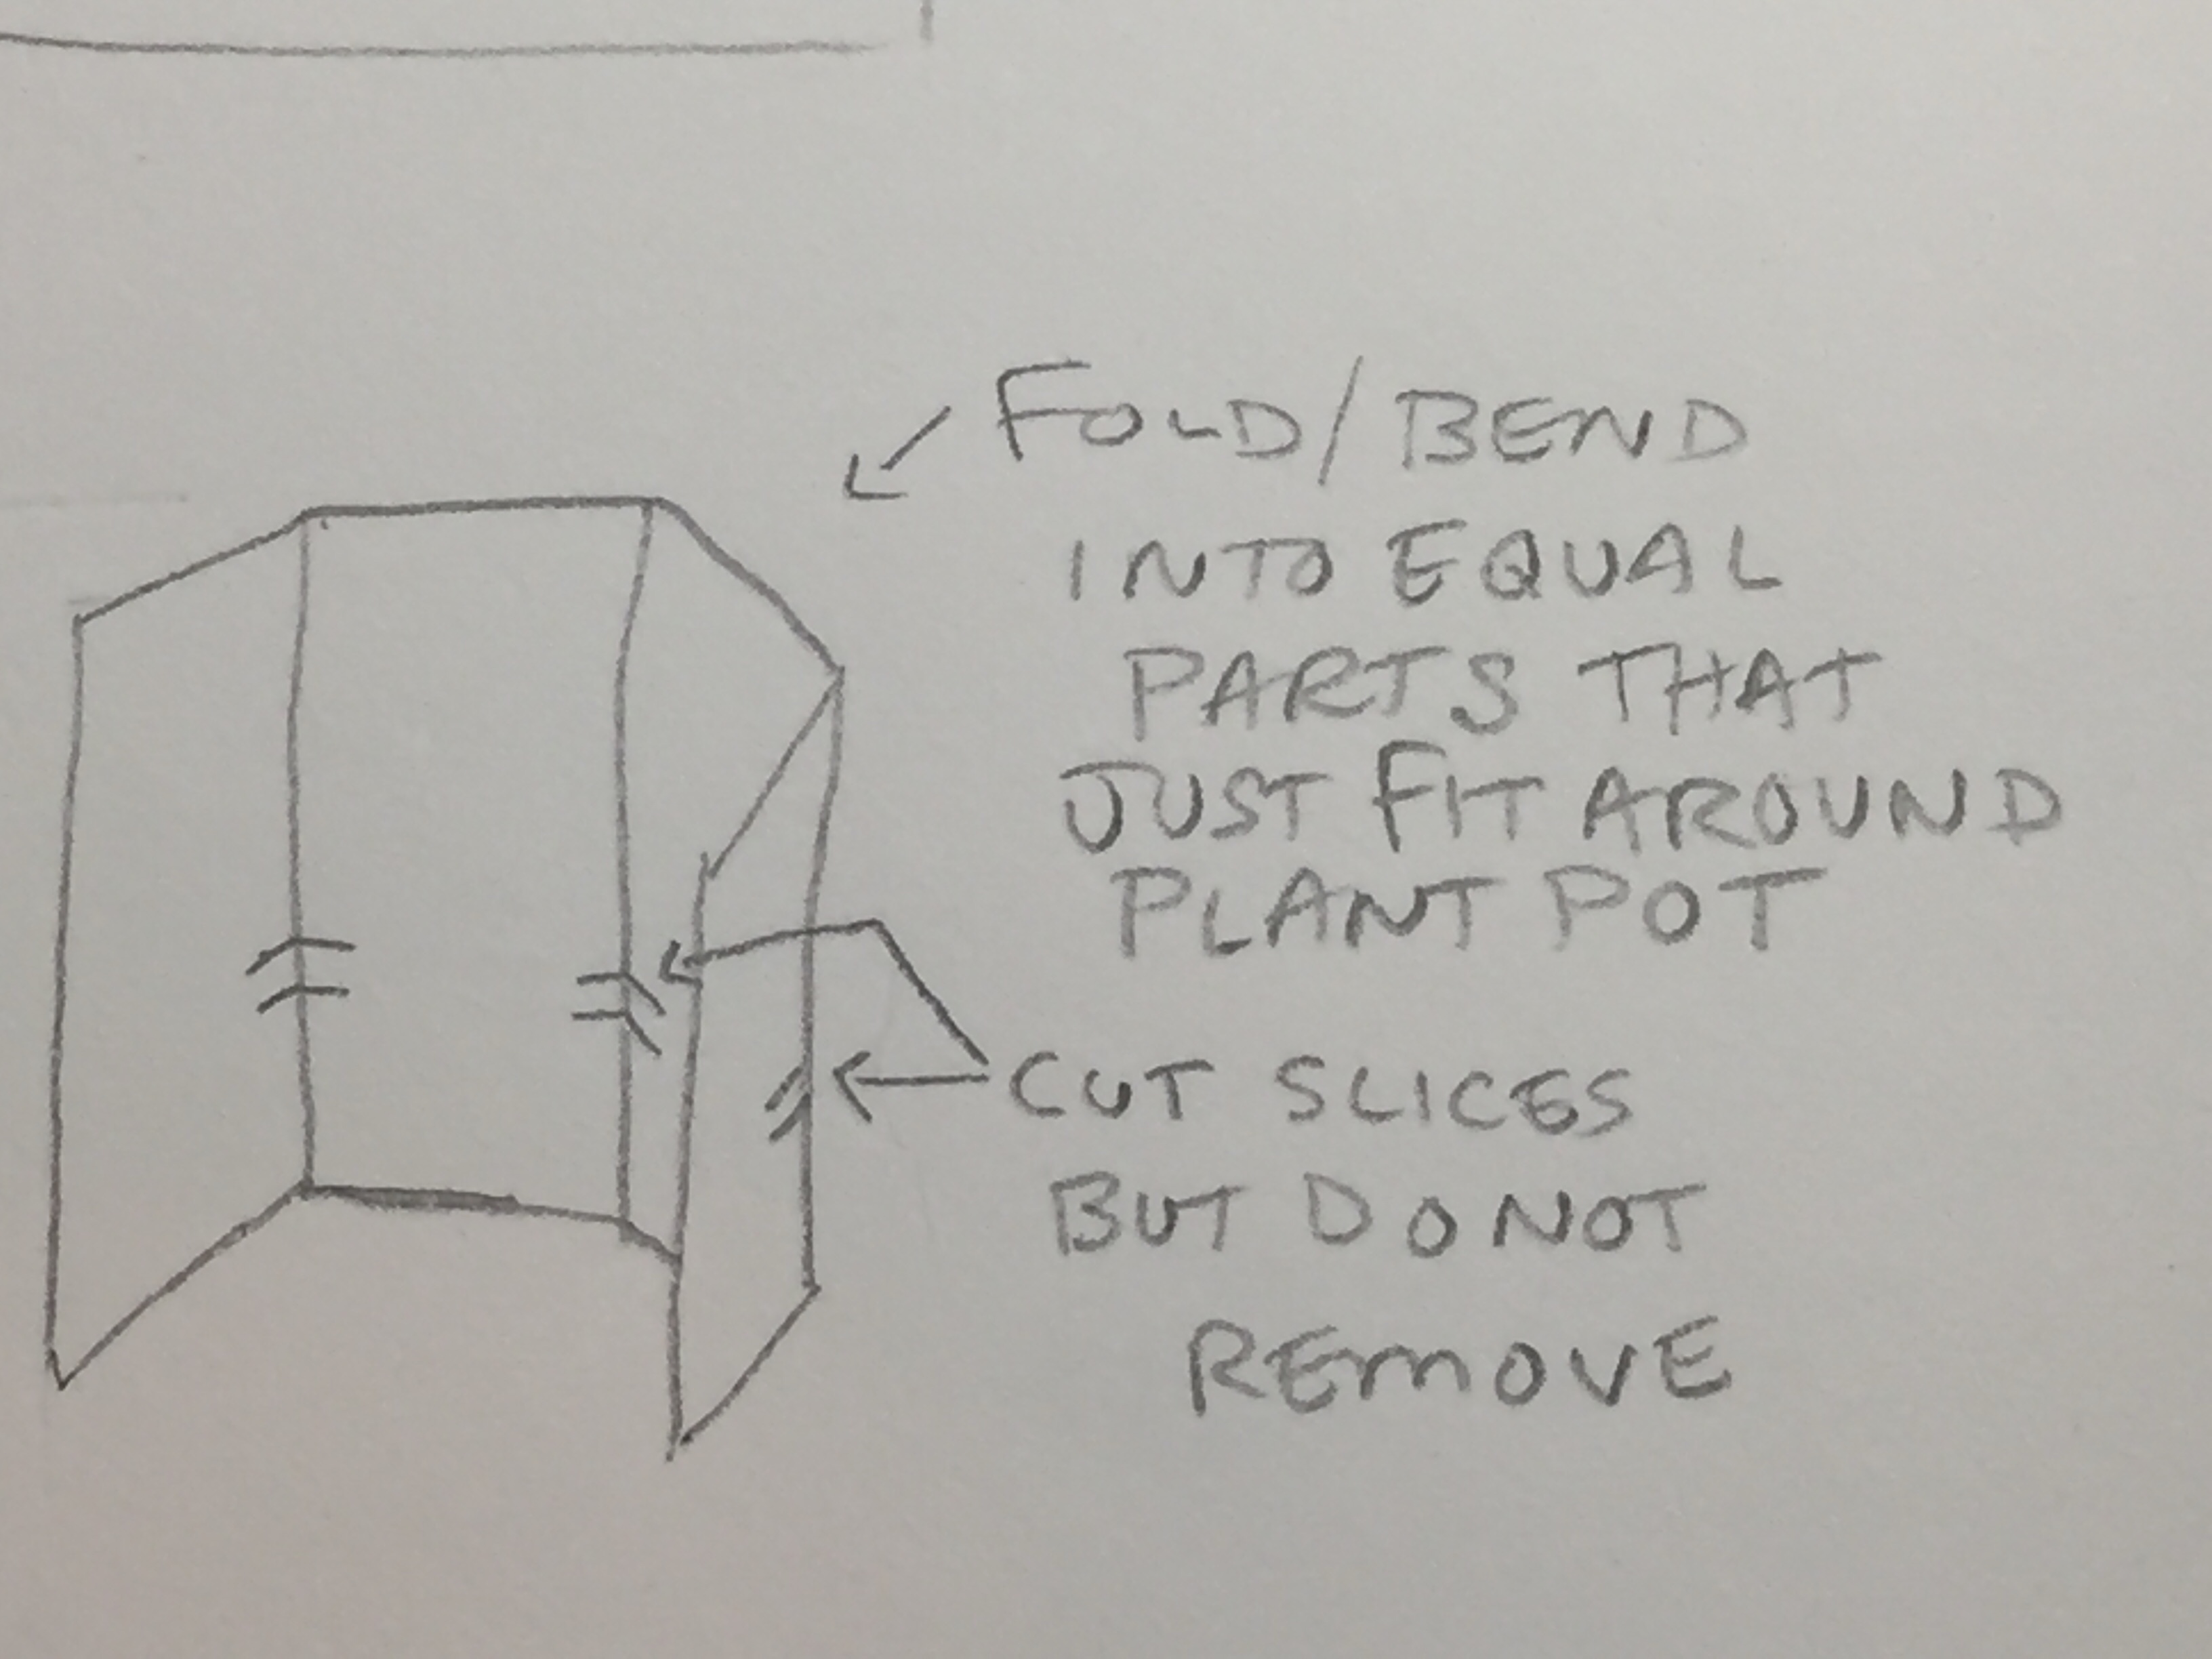 FOLD/BEND
INTO EQUAL
PARTS THAT
JUST FIT AROUND
PLANT POT
CUT SLICES
BUT DO NOT
REMOVE